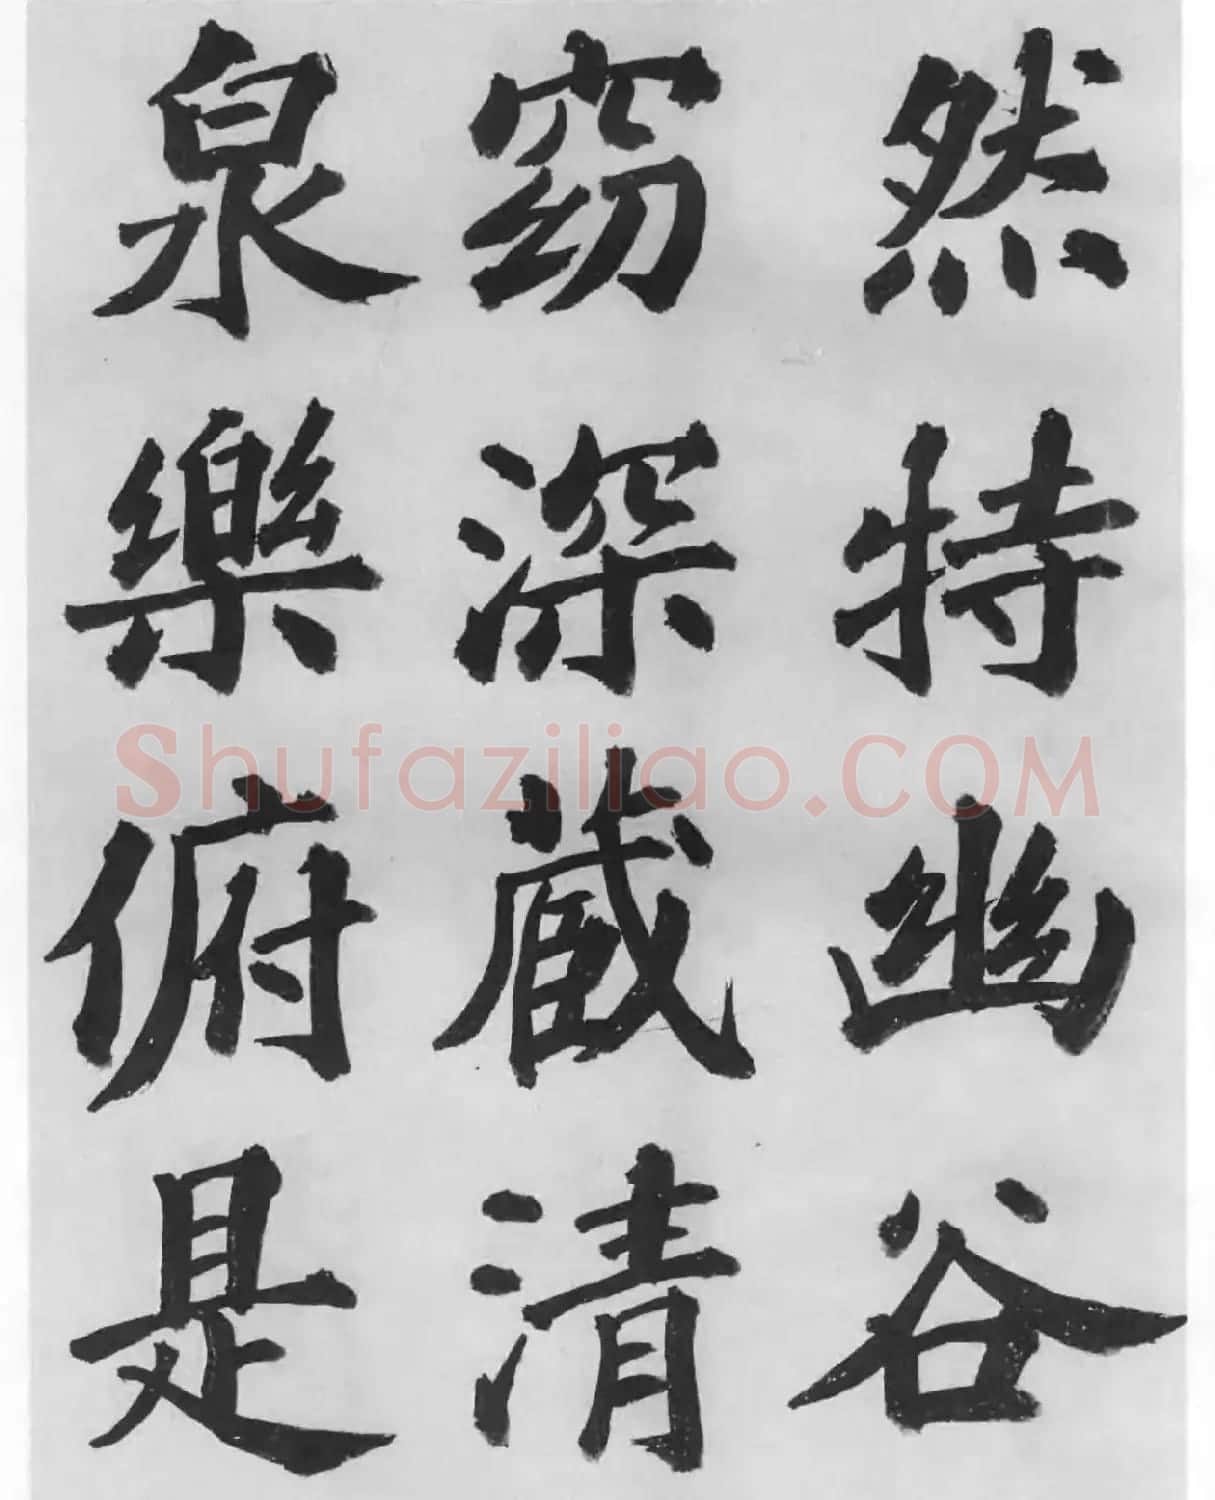 然特幽谷
窈深藏清
泉樂俯是
Shufaziliao.COM